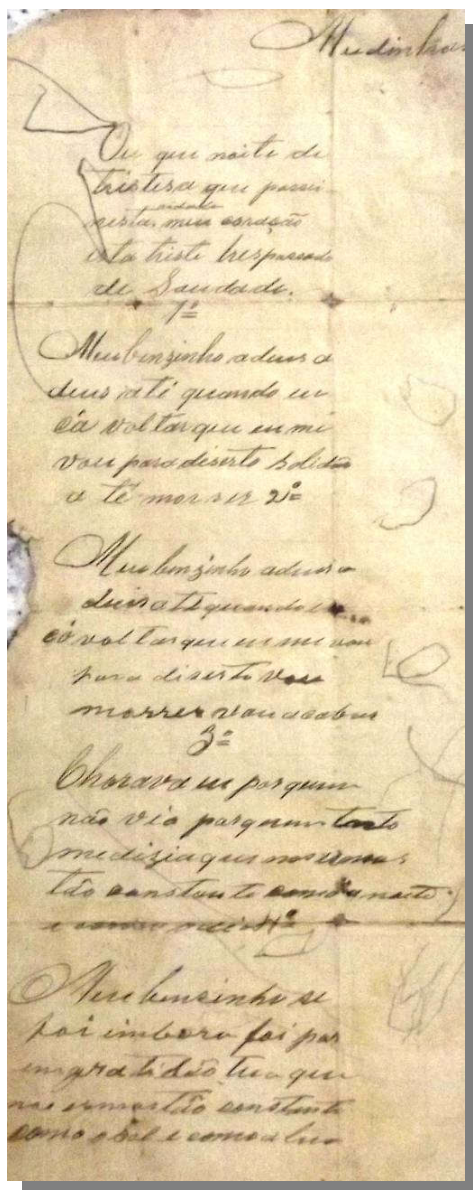 Mudinhas
Ou que noite de
tristesa que passei
nesta cidade meu coração
esta triste trespassado
de Saudade.
1º
Meu benzinho adeus a
deus até quando eu
cá voltar que eu mi
vou para diserto solidão
a té morrer 2º
Meu benzinho adeus a
deus até quando eu
cá voltar que eu mi vou
para diserto vou
morrer vou acabar
3º
Chorava eu por quem
não via por quem tanto
me dizia que
tão constante como a noite
e como 4º
Meu bensinho se
foi imbora foi por
ingratidão tua que
nos ermos tão constante
como o Sol e como a lua